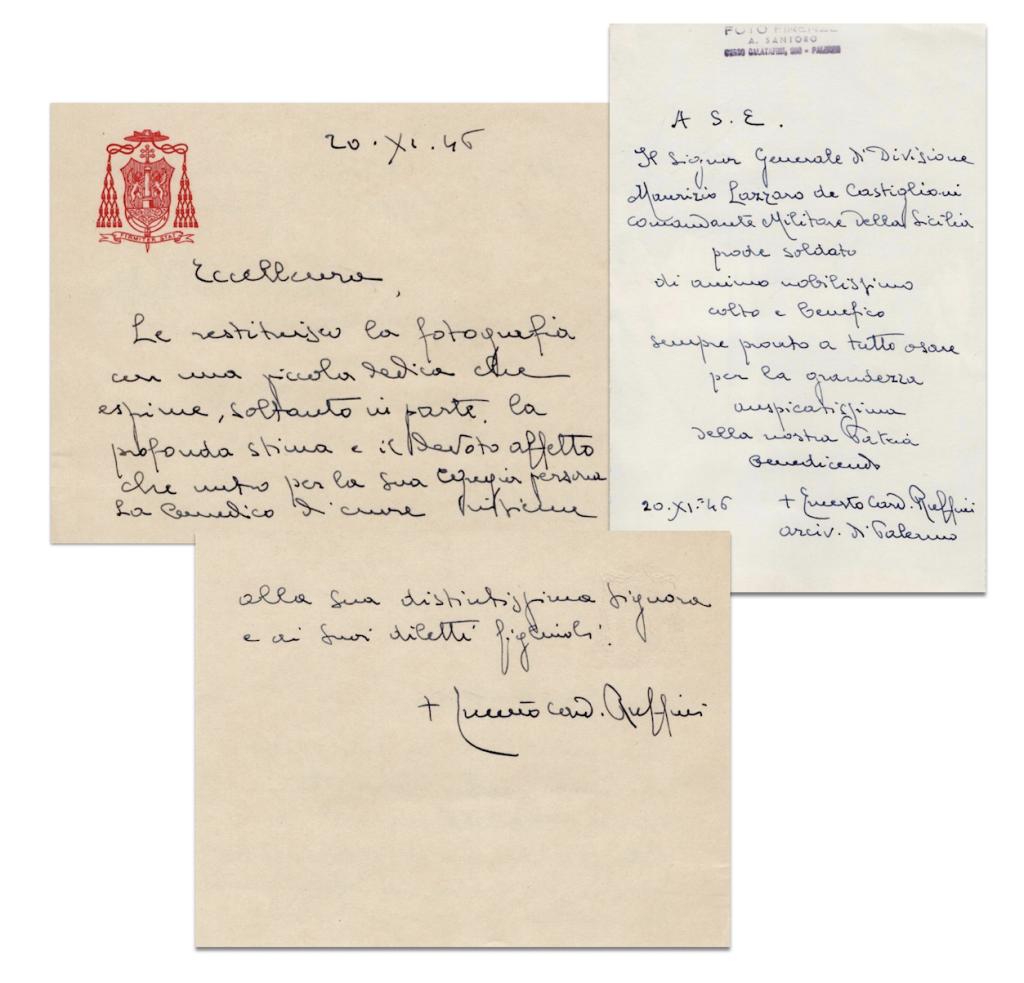 20.XI.46
FIRMITER STAT
Eccellenza,
Le restituisco la fotografia
con una piccola dedica che
esprime, soltanto in parte, la
profonda stima e il devoto affetto
che nutro per la Sua egregia persona
La benedico di cuore insieme
alla Sua distintissima Signora
e ai Suoi diletti figliuoli.
+ Ernesto Card. Ruffini
FOTO FIRENZE
A. SANTORO
CORSO CALATAFIMI, - PALERMO
A S. E.
Il Signor Generale di Divisione
Maurizio Lazzaro de Castiglioni
Comandante Militare della Sicilia
prode soldato
di animo nobilissimo
colto e benefico
sempre pronto a tutto osare
per la grandezza
auspicatissima
della nostra Patria
Benedicendo
20.XI.46 + Ernesto Card. Ruffini
arciv. di Palermo